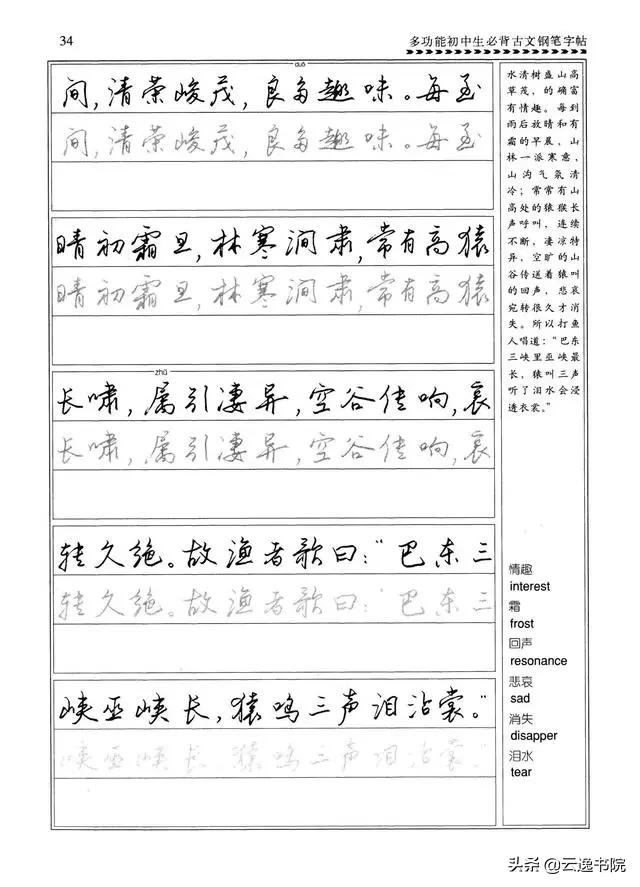 34
多功能初中生必背古文钢笔字帖
duō
间，清荣峻茂，良多趣味。每至
间，清荣峻茂，良多趣味。每至
晴初霜旦，林寒涧肃，常有高猿
晴初霜旦，林寒涧肃，常有高猿
zhǔ
长啸，属引凄异，空谷传响，哀
长啸，属引凄异，空谷传响，哀
转久绝。故渔者歌曰：“巴东三
转久绝。故渔者歌曰：“巴东三
峡巫峡长，猿鸣三声泪沾裳。”
峡巫峡长，猿鸣三声泪沾裳。”
水清树盛山高
草茂，的确富
有情趣。每到
雨后放晴和有
霜的早晨，山
林一派寒意，
山沟气氛清
冷；常常有山
高处的猿猴长
声呼叫，连续
不断，凄凉特
异，空旷的山
谷传送着猿叫
的回声，悲哀
宛转很久才消
失。所以打鱼
人唱道：“巴东
三峡里巫峡最
长，猿叫三声
听了泪水会浸
透衣裳。”
情趣
interest
霜
frost
回声
resonance
悲哀
sad
消失
disapper
泪水
tear
头条 @云逸书院